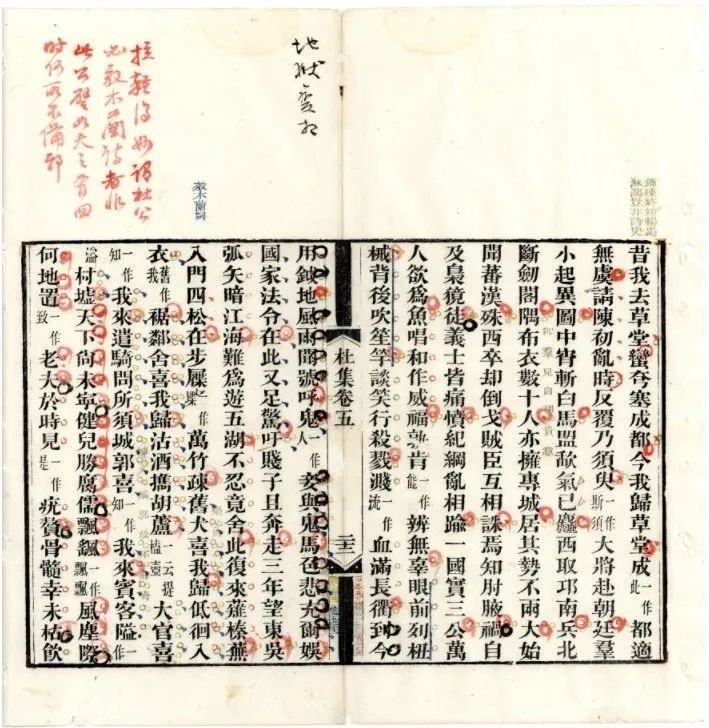 淋漓豈非詩史
昔我去草堂蠻夷塞成都今我歸草堂成一作此都適
無虞請陳初亂時反覆乃須臾一作斯須大將赴朝廷羣
小起異圖中宵斬白馬盟歃氣已麤西取邛南兵北
斷劒閣隅布衣數十人亦擁專城居其勢不兩大始
聞蕃漢殊西卒却倒戈賊臣互相誅焉知肘腋禍自
及梟獍徒義士皆痛憤紀綱亂相踰一國實三公萬
人欲爲魚唱和作威福孰肯一作能辨無辜眼前列杻
械背後吹笙竽談笑行殺戮濺一作流血滿長衢到今
杜集卷五
地獄變相
用鉞地風雨聞號呼鬼一作人妾與鬼馬色悲充爾娛
國家法令在此又足驚吁賤子且奔走三年望東吳
弧矢暗江海難爲遊五湖不忍竟舍此復來薙榛蕪
效木蘭詞
入門四松在步屧一作萬竹疎舊犬喜我歸低徊入
衣舊一作我裾鄰舍喜我歸沽酒攜胡蘆一云提榼壺大官喜
一作知我來遣騎問所須城郭喜一作知我來賓客隘一作
溢村墟天下尚未寧健兒勝腐儒飄颻一作飄飄風塵際
何地置一作致老夫於時見一作是疣贅骨髓幸未枯飲
拉雜得妙謂杜公
必效木蘭詩者非
此公譬如天之有四
時何所不備邪